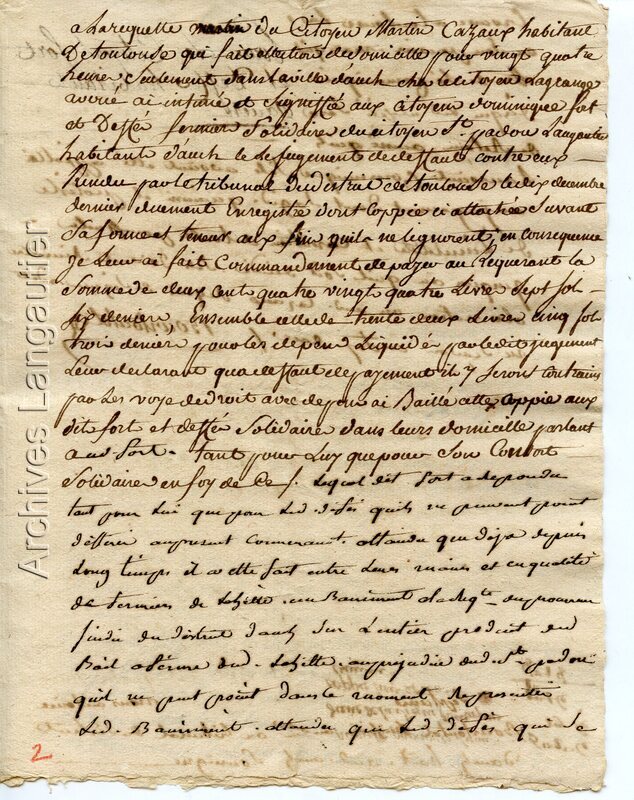 a Larequette martin du Citoyen Martin Cazaux habitant
De toulouse qui fait ellection de domicille pour vingt quatre
heure seulement dans la ville d'auch chez le citoyen Lagrange
avoué ai intimé et signiffié aux citoyen dominique fort
et Deffés fermier Solidaire du citoyen St padou Langautier
habitant d'auch le Jugement de deffaut contre eux
Rendu par le tribunal du district de toulouse le dix decembre
dernier duement Enregistré dont Coppie ci attachée suivant
Sa forme et teneur aux fin quils ne Lignorent, en consequence
Je Leur ai fait Commandement de payer au Requerant la
Somme de deux cent quatre vingt quatre Livre Sept sol
six deniers, Ensemble celle de trente deux Livres cinq sol
trois deniers pour les depend Liquidés par ledit jugement
Leur declarant qua deffaut de payement il y Seront contrains
par Les voye de droit avec depens ai Baillé cette Coppie aux
dit fort et deffés Solidaire dans leurs domicille parlant
audt fort. tant pour Luy que pour Son Consort
Solidaire en foy de Ce /. Lequel dit fort a repondu
tant pour Lui que pour Led. defés quils ne peuvent point
deferer au present Commenant. attandu que deja depuis
Long temps il a eté fait entre Leurs mains et en qualité
de fermiers de Lahitte un Baniment a la reqte. du procureur
sindic du district d'auch Sur Lentier produit du
Bail a ferme dud. Lahitte. au prejudice dud. St. padou
qu'il ne peut point dans le moment representer
Led. Baniment. attandu que Led. defés qui Le
2
Archives Langautier